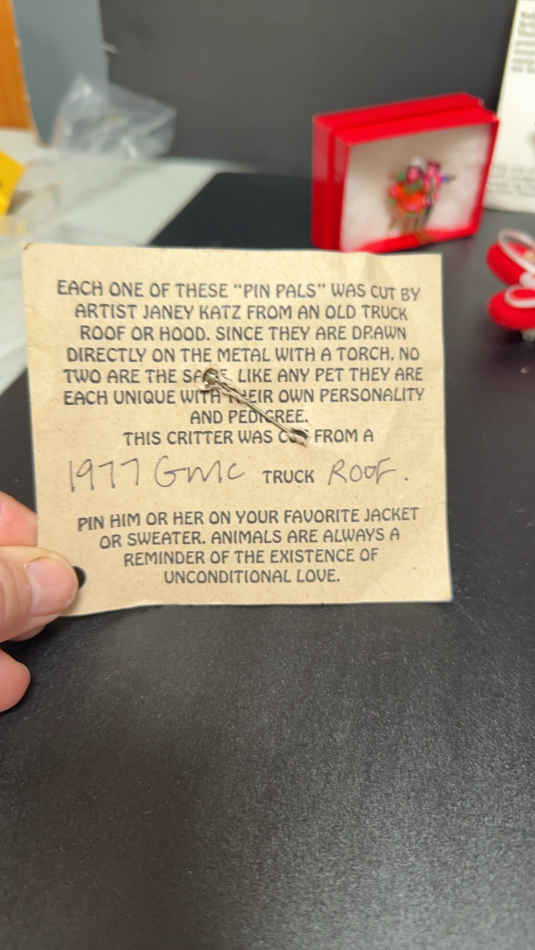 EACH ONE OF THESE "PIN PALS" WAS CUT BY
ARTIST JANEY KATZ FROM AN OLD TRUCK
ROOF OR HOOD. SINCE THEY ARE DRAWN
DIRECTLY ON THE METAL WITH A TORCH, NO
TWO ARE THE SAME. LIKE ANY PET THEY ARE
EACH UNIQUE WITH THEIR OWN PERSONALITY
AND PEDIGREE.
THIS CRITTER WAS CUT FROM A
1977 GMC TRUCK ROOF.
PIN HIM OR HER ON YOUR FAVORITE JACKET
OR SWEATER. ANIMALS ARE ALWAYS A
REMINDER OF THE EXISTENCE OF
UNCONDITIONAL LOVE.